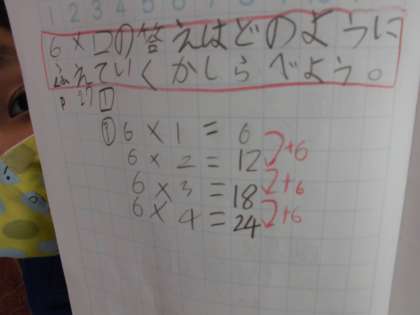 1 2 3 4 5 6 7
6×□の答えはどのように
ふえていくかしらべよう。
P27 1
① 6×1=6
6×2=12 +6
6×3=18 +6
6×4=24 +6